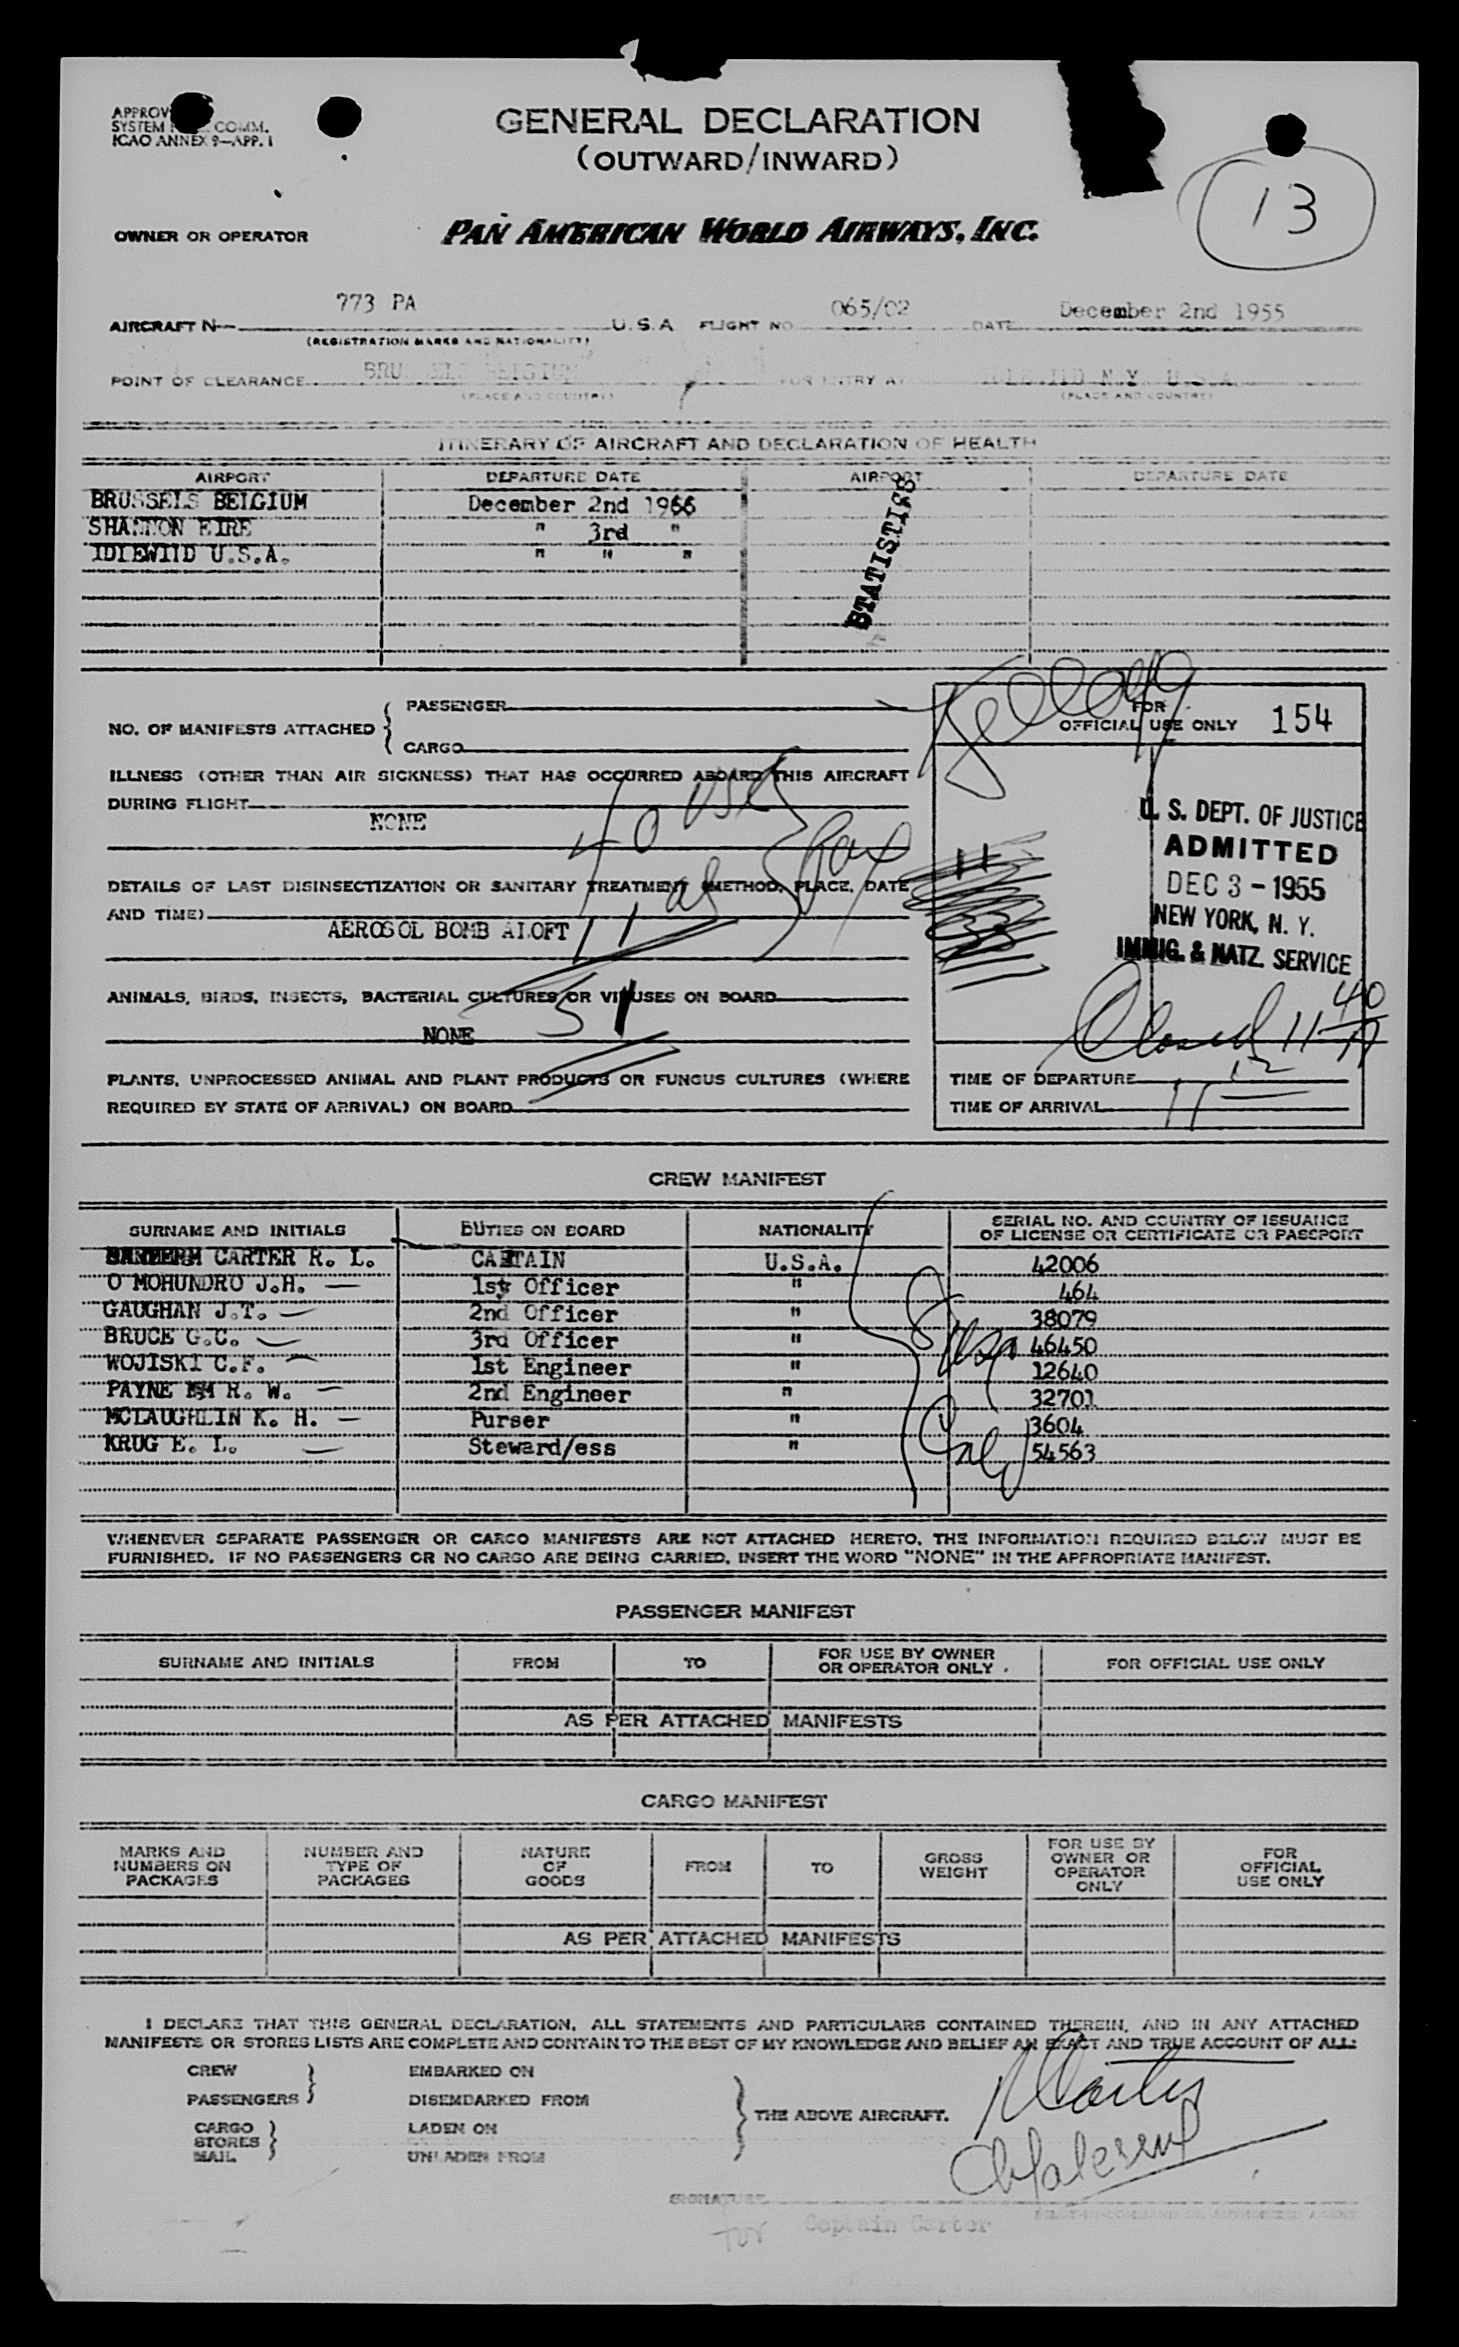 GENERAL DECLARATION
(OUTWARD/INWARD)
SYSTEM COMM.
ICAO ANNEX 9—APP. 1
13
OWNER OR OPERATOR PAN AMERICAN WORLD AIRWAYS, INC.
AIRCRAFT N— 773 PA U.S.A. FLIGHT NO. 065/02 DATE December 2nd 1955
(REGISTRATION MARKS AND NATIONALITY)
POINT OF CLEARANCE BELGIUM FOR ENTRY AT N.Y. U.S.A.
(PLACE AND COUNTRY) (PLACE AND COUNTRY)
ITINERARY OF AIRCRAFT AND DECLARATION OF HEALTH
AIRPORT DEPARTURE DATE AIRPORT DEPARTURE DATE
BRUSSELS BELGIUM December 2nd 1955
SHANNON EIRE " 3rd "
IDLEWILD U.S.A. " " "
STATISTICS
NO. OF MANIFESTS ATTACHED { PASSENGER
CARGO
ILLNESS (OTHER THAN AIR SICKNESS) THAT HAS OCCURRED ABOARD THIS AIRCRAFT
DURING FLIGHT
NONE
40 USC
11 al
Pax
51
DETAILS OF LAST DISINSECTIZATION OR SANITARY TREATMENT (METHOD, PLACE, DATE
AND TIME)
AEROSOL BOMB ALOFT
ANIMALS, BIRDS, INSECTS, BACTERIAL CULTURES OR VIRUSES ON BOARD
NONE
PLANTS, UNPROCESSED ANIMAL AND PLANT PRODUCTS OR FUNGUS CULTURES (WHERE
REQUIRED BY STATE OF ARRIVAL) ON BOARD
Kellogg
FOR
OFFICIAL USE ONLY 154
11
U. S. DEPT. OF JUSTICE
ADMITTED
DEC 3 - 1955
NEW YORK, N. Y.
IMMIG. & NATZ. SERVICE
Closed 11 40
TIME OF DEPARTURE
TIME OF ARRIVAL 11 12
CREW MANIFEST
SURNAME AND INITIALS DUTIES ON BOARD NATIONALITY SERIAL NO. AND COUNTRY OF ISSUANCE
OF LICENSE OR CERTIFICATE OR PASSPORT
CARTER R. L. CAPTAIN U.S.A. 42006
O MOHUNDRO J.H. 1st Officer " 464
GAUGHAN J.T. 2nd Officer " 38079
BRUCE G.C. 3rd Officer " 46450
WOJISKI C.F. 1st Engineer " 12640
PAYNE R. W. 2nd Engineer " 32701
MCLAUGHLIN K. H. Purser " 3604
KRUG E. L. Steward/ess " 54563
WHENEVER SEPARATE PASSENGER OR CARGO MANIFESTS ARE NOT ATTACHED HERETO, THE INFORMATION REQUIRED BELOW MUST BE
FURNISHED. IF NO PASSENGERS OR NO CARGO ARE BEING CARRIED, INSERT THE WORD "NONE" IN THE APPROPRIATE MANIFEST.
PASSENGER MANIFEST
SURNAME AND INITIALS FROM TO FOR USE BY OWNER
OR OPERATOR ONLY FOR OFFICIAL USE ONLY
AS PER ATTACHED MANIFESTS
CARGO MANIFEST
MARKS AND
NUMBERS ON
PACKAGES NUMBER AND
TYPE OF
PACKAGES NATURE
OF
GOODS FROM TO GROSS
WEIGHT FOR USE BY
OWNER OR
OPERATOR
ONLY FOR
OFFICIAL
USE ONLY
AS PER ATTACHED MANIFESTS
I DECLARE THAT THIS GENERAL DECLARATION, ALL STATEMENTS AND PARTICULARS CONTAINED THEREIN, AND IN ANY ATTACHED
MANIFESTS OR STORES LISTS ARE COMPLETE AND CONTAIN TO THE BEST OF MY KNOWLEDGE AND BELIEF AN EXACT AND TRUE ACCOUNT OF ALL:
CREW EMBARKED ON
PASSENGERS DISEMBARKED FROM
THE ABOVE AIRCRAFT.
CARGO LADEN ON
STORES
MAIL UNLADEN FROM
SIGNATURE
Captain Carter